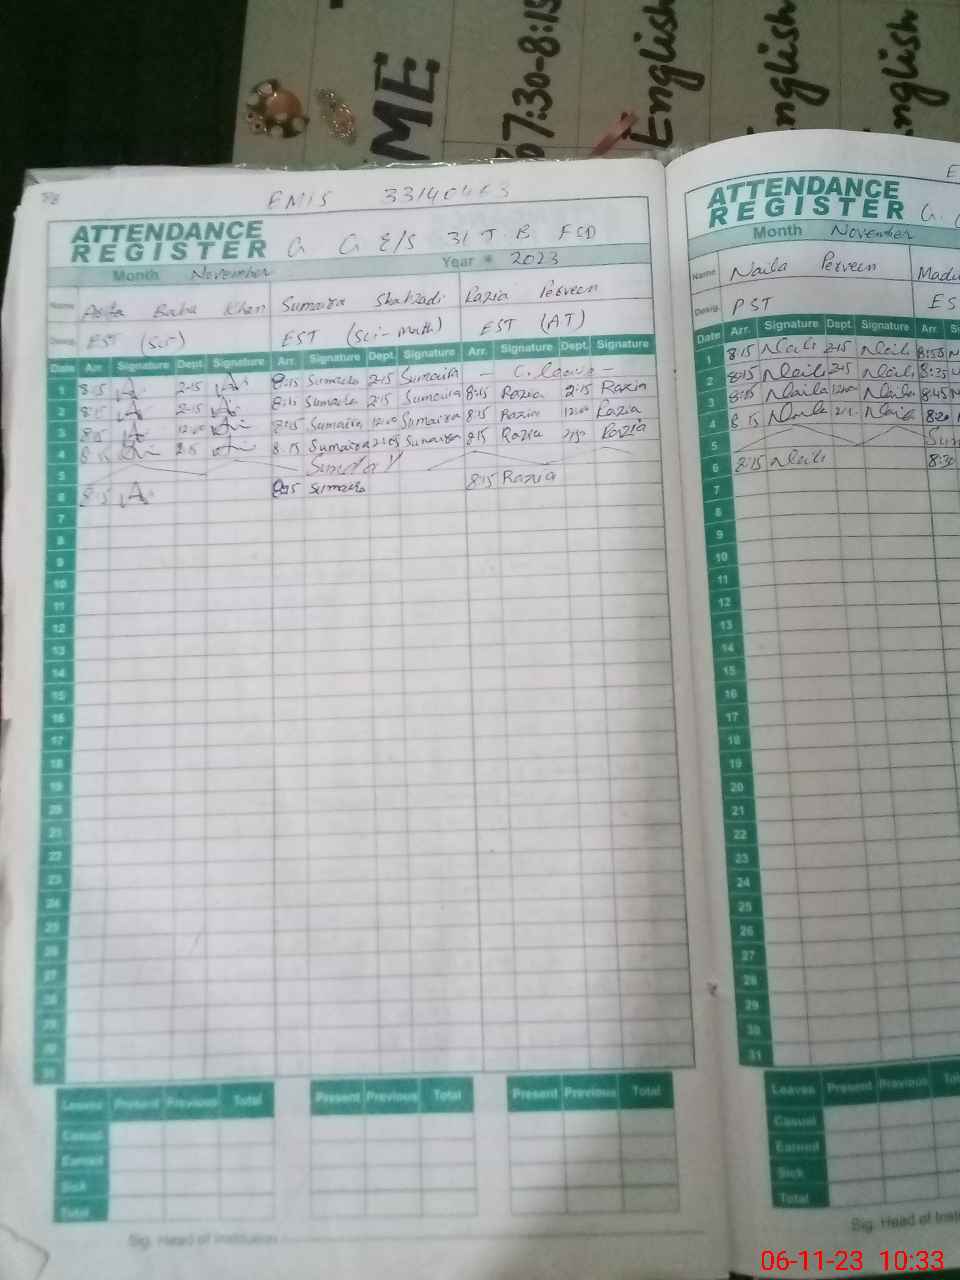 ME
7:30-8:15
English
English
English
EMIS 33140463
ATTENDANCE
REGISTER G G E/S 31 J B FSD
Month November Year 2023
Name Khan Sumaira Shahzadi Razia Perveen
EST (Sci) EST (Sci-math) EST (AT)
Date Arr. Signature Dept. Signature Arr. Signature Dept. Signature Arr. Signature Dept. Signature
1 8:15 2-15 8:15 Sumaira 2:15 Sumaira - C. leave -
2 8:15 2-15 8:15 Sumaira 2:15 Sumaira 8:15 Razia 2:15 Razia
3 8:15 12:00 8:15 Sumaira 12:00 Sumaira 8:15 Razia 12:00 Razia
4 8:15 2:15 8:15 Sumaira Sumaira 8:15 Razia Razia
5 Sunday
6 8:15 8:15 Sumaira 8:15 Razia
7
8
9
10
11
12
13
14
15
16
17
18
19
20
21
22
23
24
25
26
27
28
29
30
31
Leaves Present Previous Total Present Previous Total Present Previous Total
Casual
Earned
Sick
Total
Sig. Head of Institution
ATTENDANCE
REGISTER G.
Month November
Name Naila Perveen
Desig. PST ES
Date Arr. Signature Dept. Signature Arr.
1 8:15 Naila 2-15 Naila 8:55
2 8:15 Naila 2-15 Naila 8:35
3 8:15 Naila 12:00 Naila 8:45
4 8:15 Naila Naila 8:20
5
6 8:15 Naila 8:30
7
8
9
10
11
12
13
14
15
16
17
18
19
20
21
22
23
24
25
26
27
28
29
30
31
Leaves Present Previous
Casual
Earned
Sick
Total
Sig. Head of
06-11-23 10:33